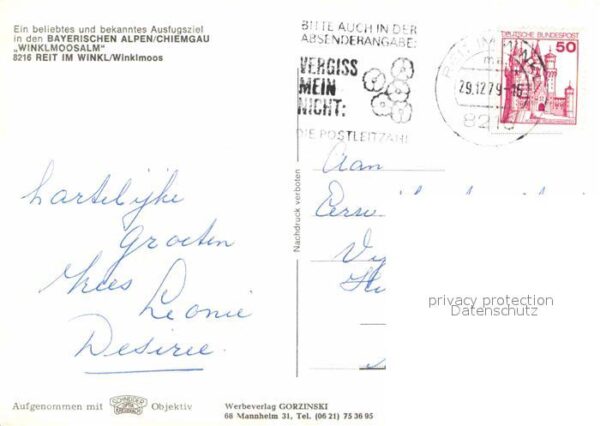 Ein beliebtes und bekanntes Ausfugsziel
in den BAYERISCHEN ALPEN/CHIEMGAU
„WINKLMOOSALM"
8216 REIT IM WINKL/Winklmoos
BITTE AUCH IN DER
ABSENDERANGABE:
VERGISS
MEIN
NICHT:
DIE POSTLEITZAHL
REIT IM WINKL
29.12.79-16
8216
DEUTSCHE BUNDESPOST
50
Nachdruck verboten
Aan
hartelijke
groeten
Kees Leonie
Desiree
privacy protection
Datenschutz
Aufgenommen mit SCHNEIDER KREUZNACH Objektiv
Werbeverlag GORZINSKI
68 Mannheim 31, Tel. (06 21) 75 36 95